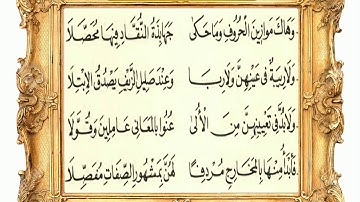 وَهَاكَ مَوَازِينَ الْحُرُوفِ وَمَا حَكَى جَهَابِذَةُ النُّقَّادِ فِيهَا مُحَصَّلَا
وَلَا رِيبَةٌ فِي عَيْنِهِنَّ وَلَا رِبَا وَعِنْدَ صَلِيلِ الزَّيْفِ يَصْدُقُ الِابْتِلَا
وَلَا بُدَّ فِي تَعْيِينِهِنَّ مِنَ الْأُلَى عُنُوا بِالْمَعَانِي عَامِلِينَ وَقُوَّلَا
فَابْدَأْ مِنْهَا بِالْمَخَارِجِ مُرْدِفًا لَهُنَّ بِمَشْهُورِ الصِّفَاتِ مُفَصِّلَا